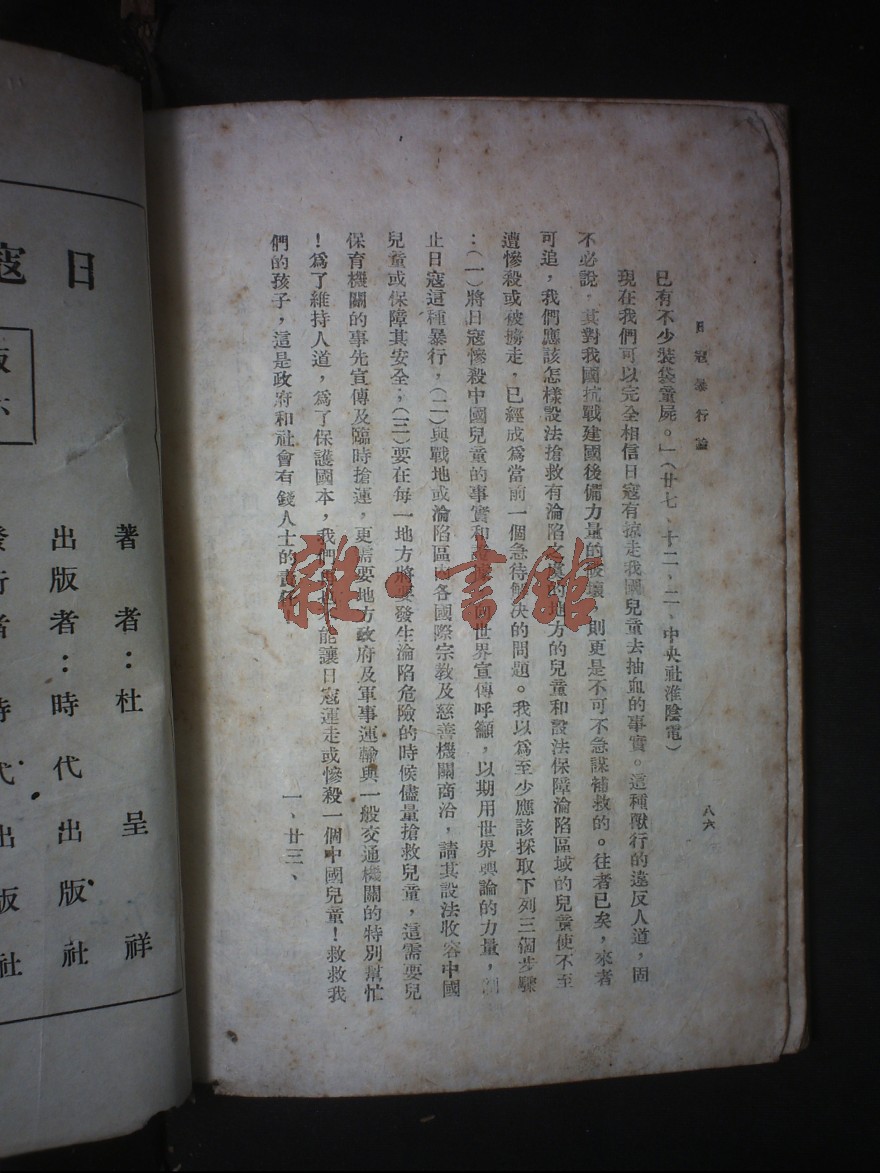 日寇暴行論
八六
已有不少裝袋童屍。」(廿七、十二、二、中央社淮陰電)
現在我們可以完全相信日寇有掠走我國兒童去抽血的事實。這種獸行的違反人道,固
不必說,其對我國抗戰建國後備力量的破壞,則更是不可不急謀補救的。往者已矣,來者
可追,我們應該怎樣設法搶救有淪陷之虞的地方的兒童和設法保障淪陷區域的兒童使不至
遭慘殺或被擄走,已經成爲當前一個急待解決的問題。我以爲至少應該採取下列三個步驟
:(一)將日寇慘殺中國兒童的事實和 世界宣傳呼籲,以期用世界輿論的力量,制
止日寇這種暴行,(二)與戰地或淪陷區內各國際宗教及慈善機關商洽,請其設法收容中國
兒童或保障其安全;(三)要在每一地方將要發生淪陷危險的時候儘量搶救兒童,這需要兒
保育機關的事先宣傳及臨時搶運,更需要地方政府及軍事運輸與一般交通機關的特別幫忙
!爲了維持人道,爲了保護國本,我們 能讓日寇運走或慘殺一個中國兒童!救救我
們的孩子,這是政府和社會有錢人士的責任
一、廿三、
日寇
版
著者:杜呈祥
出版者:時代出版社
發行者 時代出版社
雜·書館